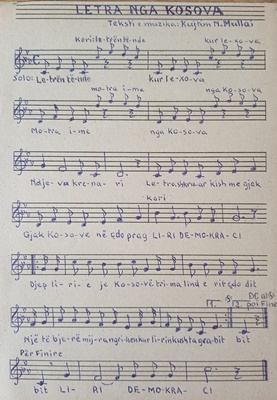 LETRA NGA KOSOVA
Teksti e muzika: Kujtim M. Mullai
Kori: Le-trën të-nde kur le-xo-va
Solo: Le-trën të-nde kur le-xo-va
mo-tra i-me nga Ko-so-va
Mo-tra i-me nga Ko-so-va
Ndje-va kre-na-ri Le-tra, shkruar kish me gjak
kori
Gjak Ko-so-ve në çdo prag LI-RI DE-MO-KRA-CI
Djep li-ri-e je Ko-so-vë tri-ma lind e rit çdo dit
Një të bje-rë mij-ra ngri-hen kur li-rin kush ta gra-bit bit
Për Finire
bit LI-RI DE-MO-KRA-CI